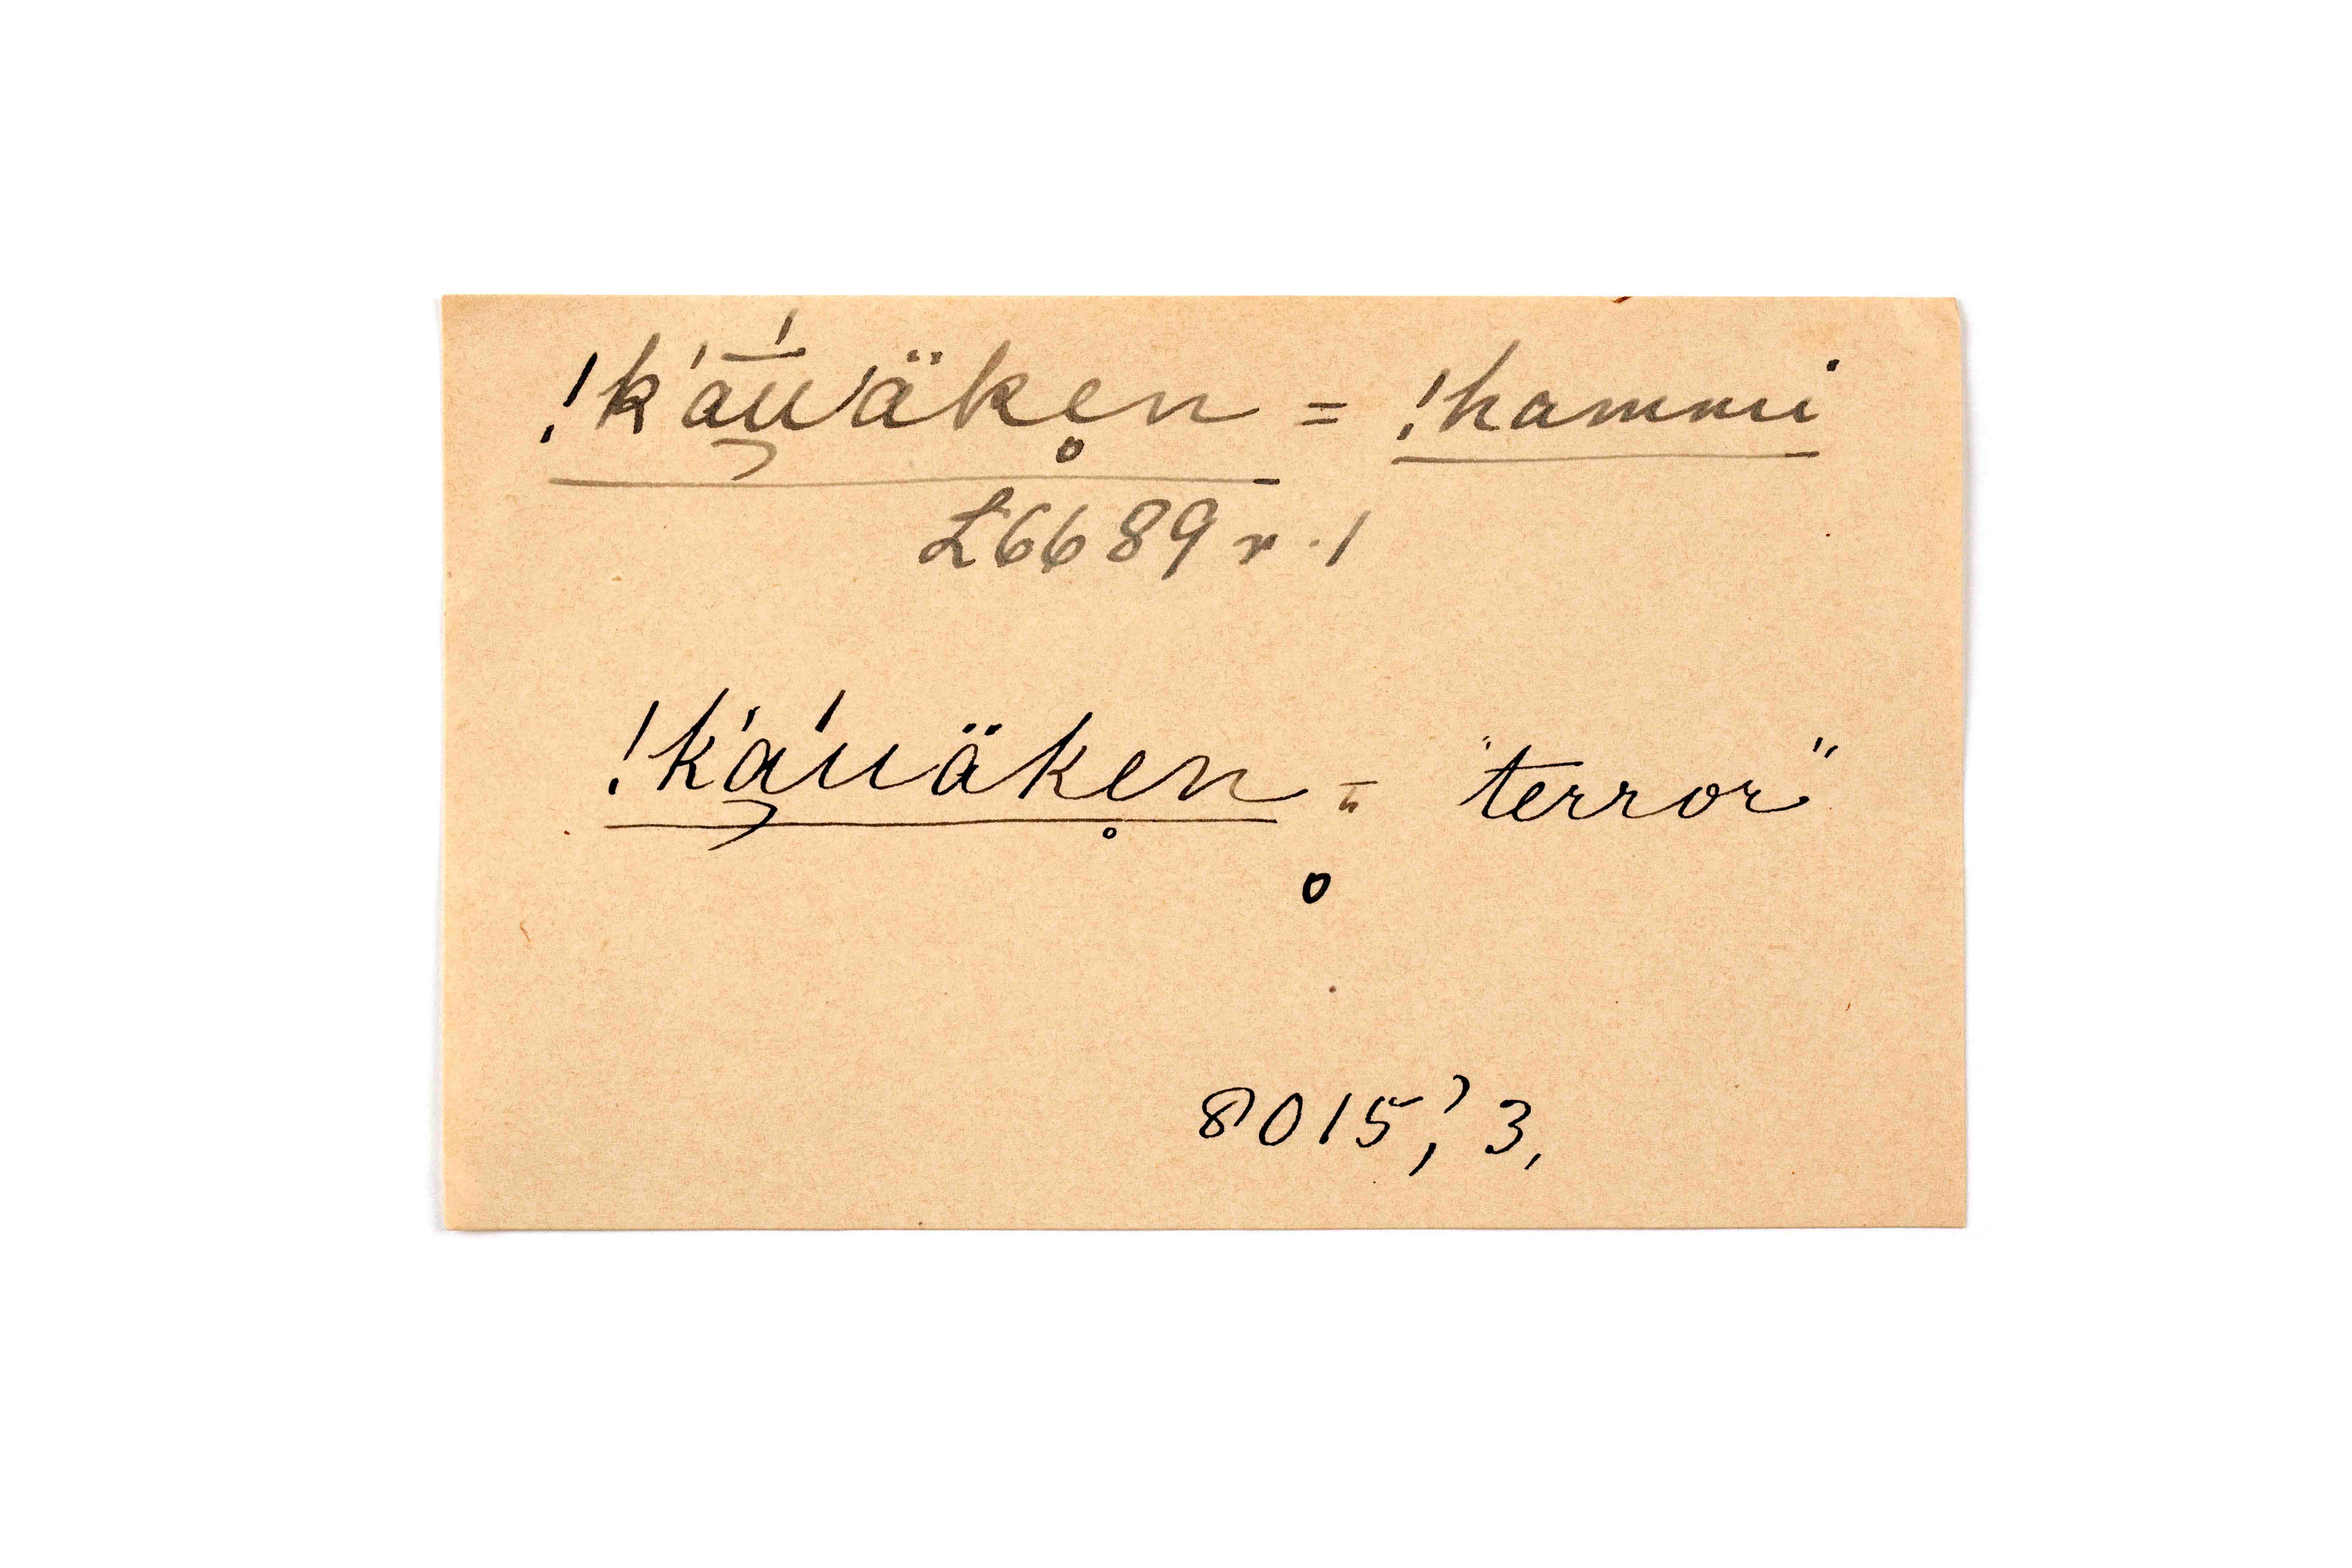 !k'ạ̄́uwäke̥n = !hammi
L6689 r. 1
!k'a̦'uäke̥n = "terror"
8015,' 3,